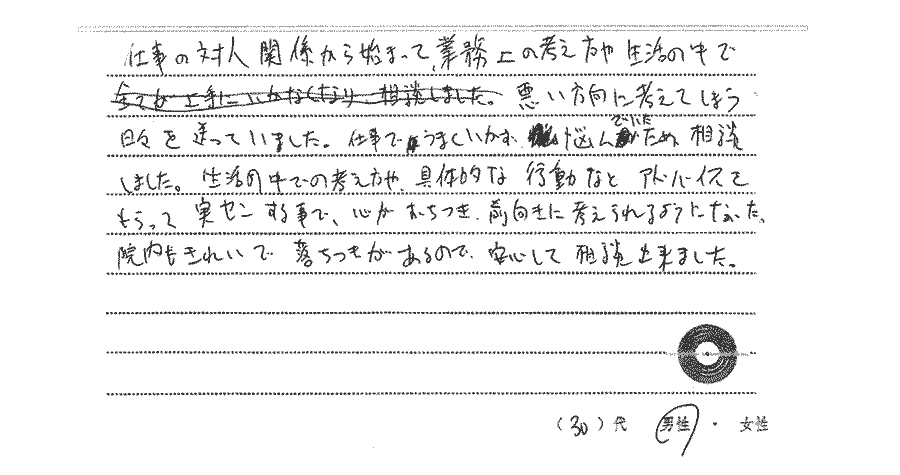 仕事の対人関係から始まって、業務上の考え方や生活の中で
全てが上手にいかなくなり、相談しました。悪い方向に考えてしまう
日々を送っていました。仕事でうまくいかず、悩んでいたため、相談
しました。生活の中での考え方や、具体的な行動などアドバイスを
もらって実センする事で、心がおちつき、前向きに考えられるようになった。
院内もきれいで落ちつきがあるので、安心して相談出来ました。
(30)代 男性・女性